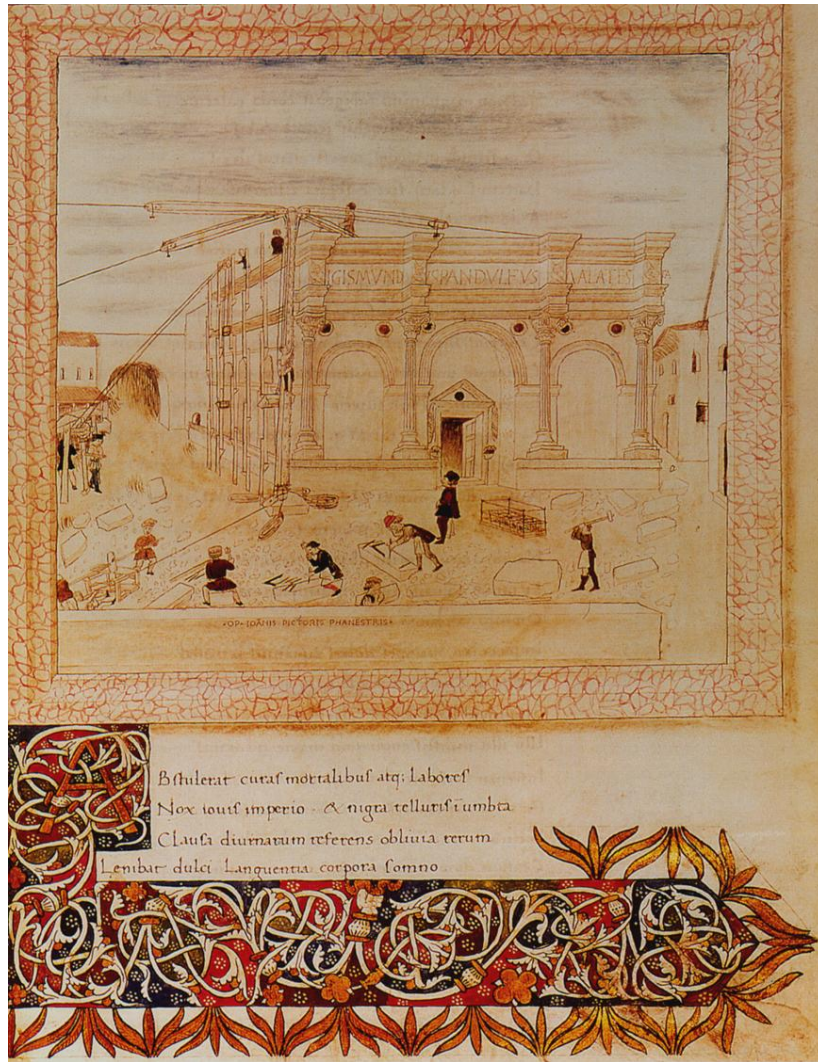 SIGISMVND SPANDVLFVS MALATES
·OP·IOANIS PICTORIS PHANESTRIS·
ABstulerat curas mortalibus atq; Labores
Nox iouis imperio & nigra telluris ī umbra
Clausa diurnarum referens oblivia rerum
Lenibat dulci Languentia corpora somno